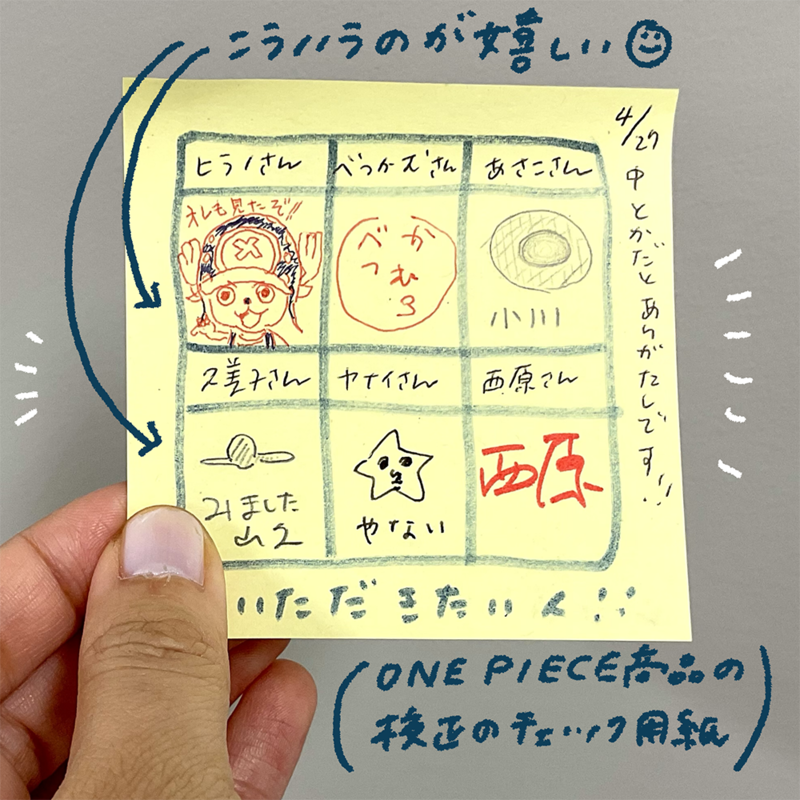 こういうのが嬉しい
4/27 中 とかだとありがたしです!!
ヒラノさん
べっかむさん
あさこさん
オレも見たぞ!!
べっ
かむ
3
小川
久美子さん
ヤナイさん
西原さん
みました
山久
やない
西原
いただきたいく!!
(ONE PIECE商品の
検正のチェック用紙)